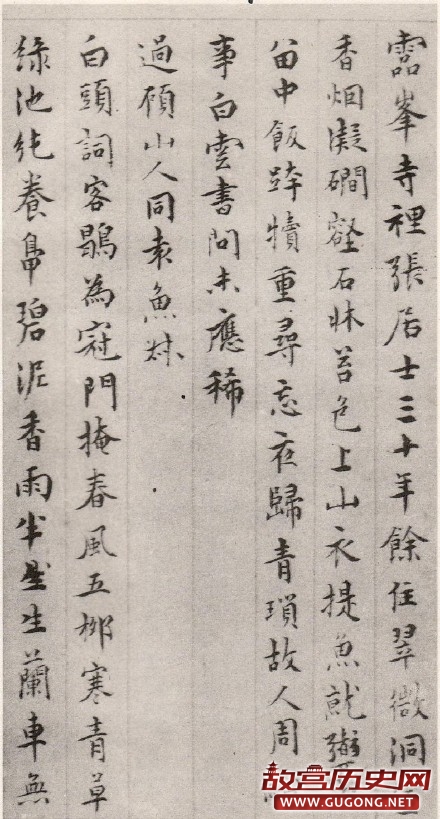 靈峯寺裡張居士三十年餘住翠微洞
香烟凝磵壑石牀苔色上山衣提魚就
中飯跨犢重尋忘夜歸青瑣故人周
事白雲書問未應稀
過頋山人同袁魚
白頭詞客鶡為冠門掩春風五栁寒青草
綠池純養碧泥香雨半生蘭車無
故宫历史网
WWW.GUGONG.NET